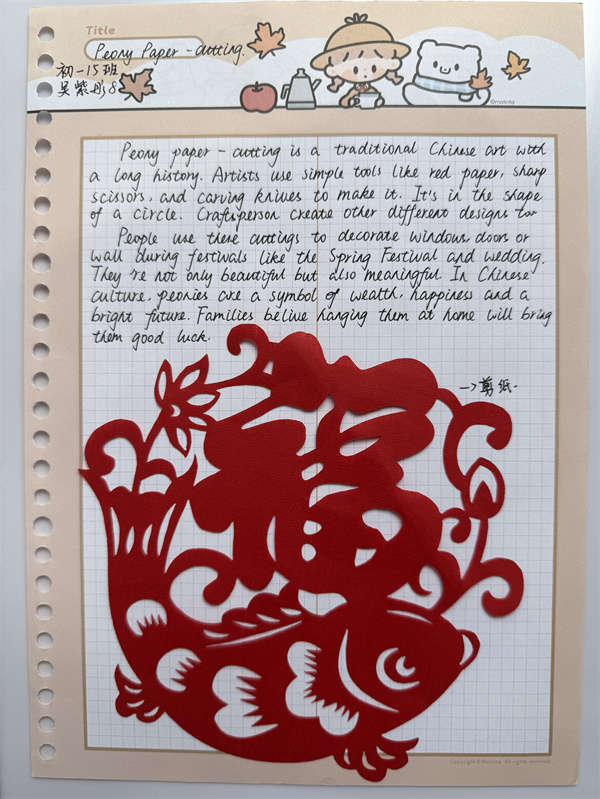 Title
Peony Paper-cutting.
初一15班
吴紫彤8
©molinta
Peony paper-cutting is a traditional Chinese art with
a long history. Artists use simple tools like red paper, sharp
scissors, and carving knives to make it. It's in the shape
of a circle. Craftsperson create other different designs too
People use these cuttings to decorate windows, doors or
wall during festivals like the Spring Festival and wedding.
They're not only beautiful but also meaningful. In Chinese
culture, peonies are a symbol of wealth, happiness and a
bright future. Families belive hanging them at home will bring
them good luck.
—>剪纸.
福
Copyright ©Molinta. All rights reserved.